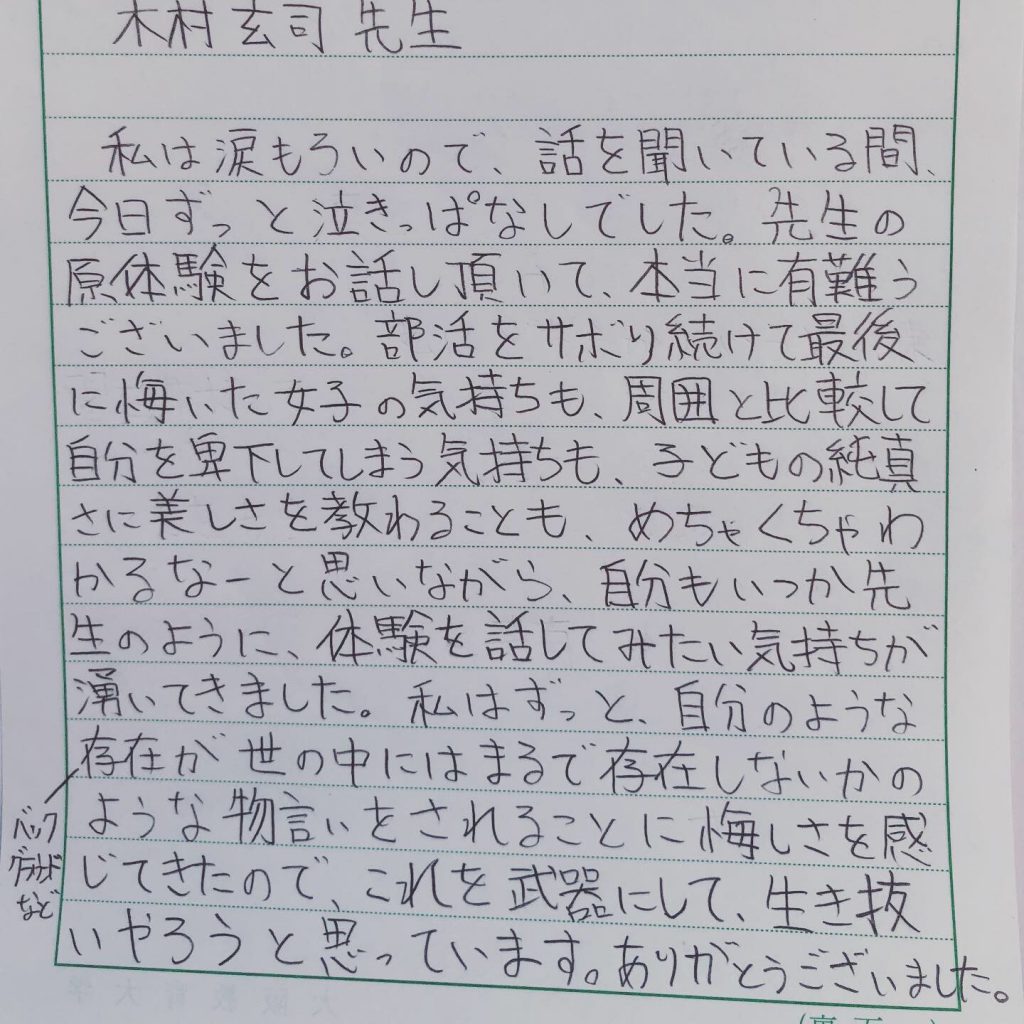 木村玄司先生
私は涙もろいので、話を聞いている間、
今日ずっと泣きっぱなしでした。先生の
原体験をお話し頂いて、本当に有難う
ございました。部活をサボり続けて最後
に悔いた女子の気持ちも、周囲と比較して
自分を卑下してしまう気持ちも、子どもの純真
さに美しさを教わることも、めちゃくちゃわ
かるなーと思いながら、自分もいつか先
生のように、体験を話してみたい気持ちが
湧いてきました。私はずっと、自分のような
存在が世の中にはまるで存在しないかの
ような物言いをされることに悔しさを感
じてきたので、これを武器にして、生き抜
いやろうと思っています。ありがとうございました。
バック
グラウンド
など